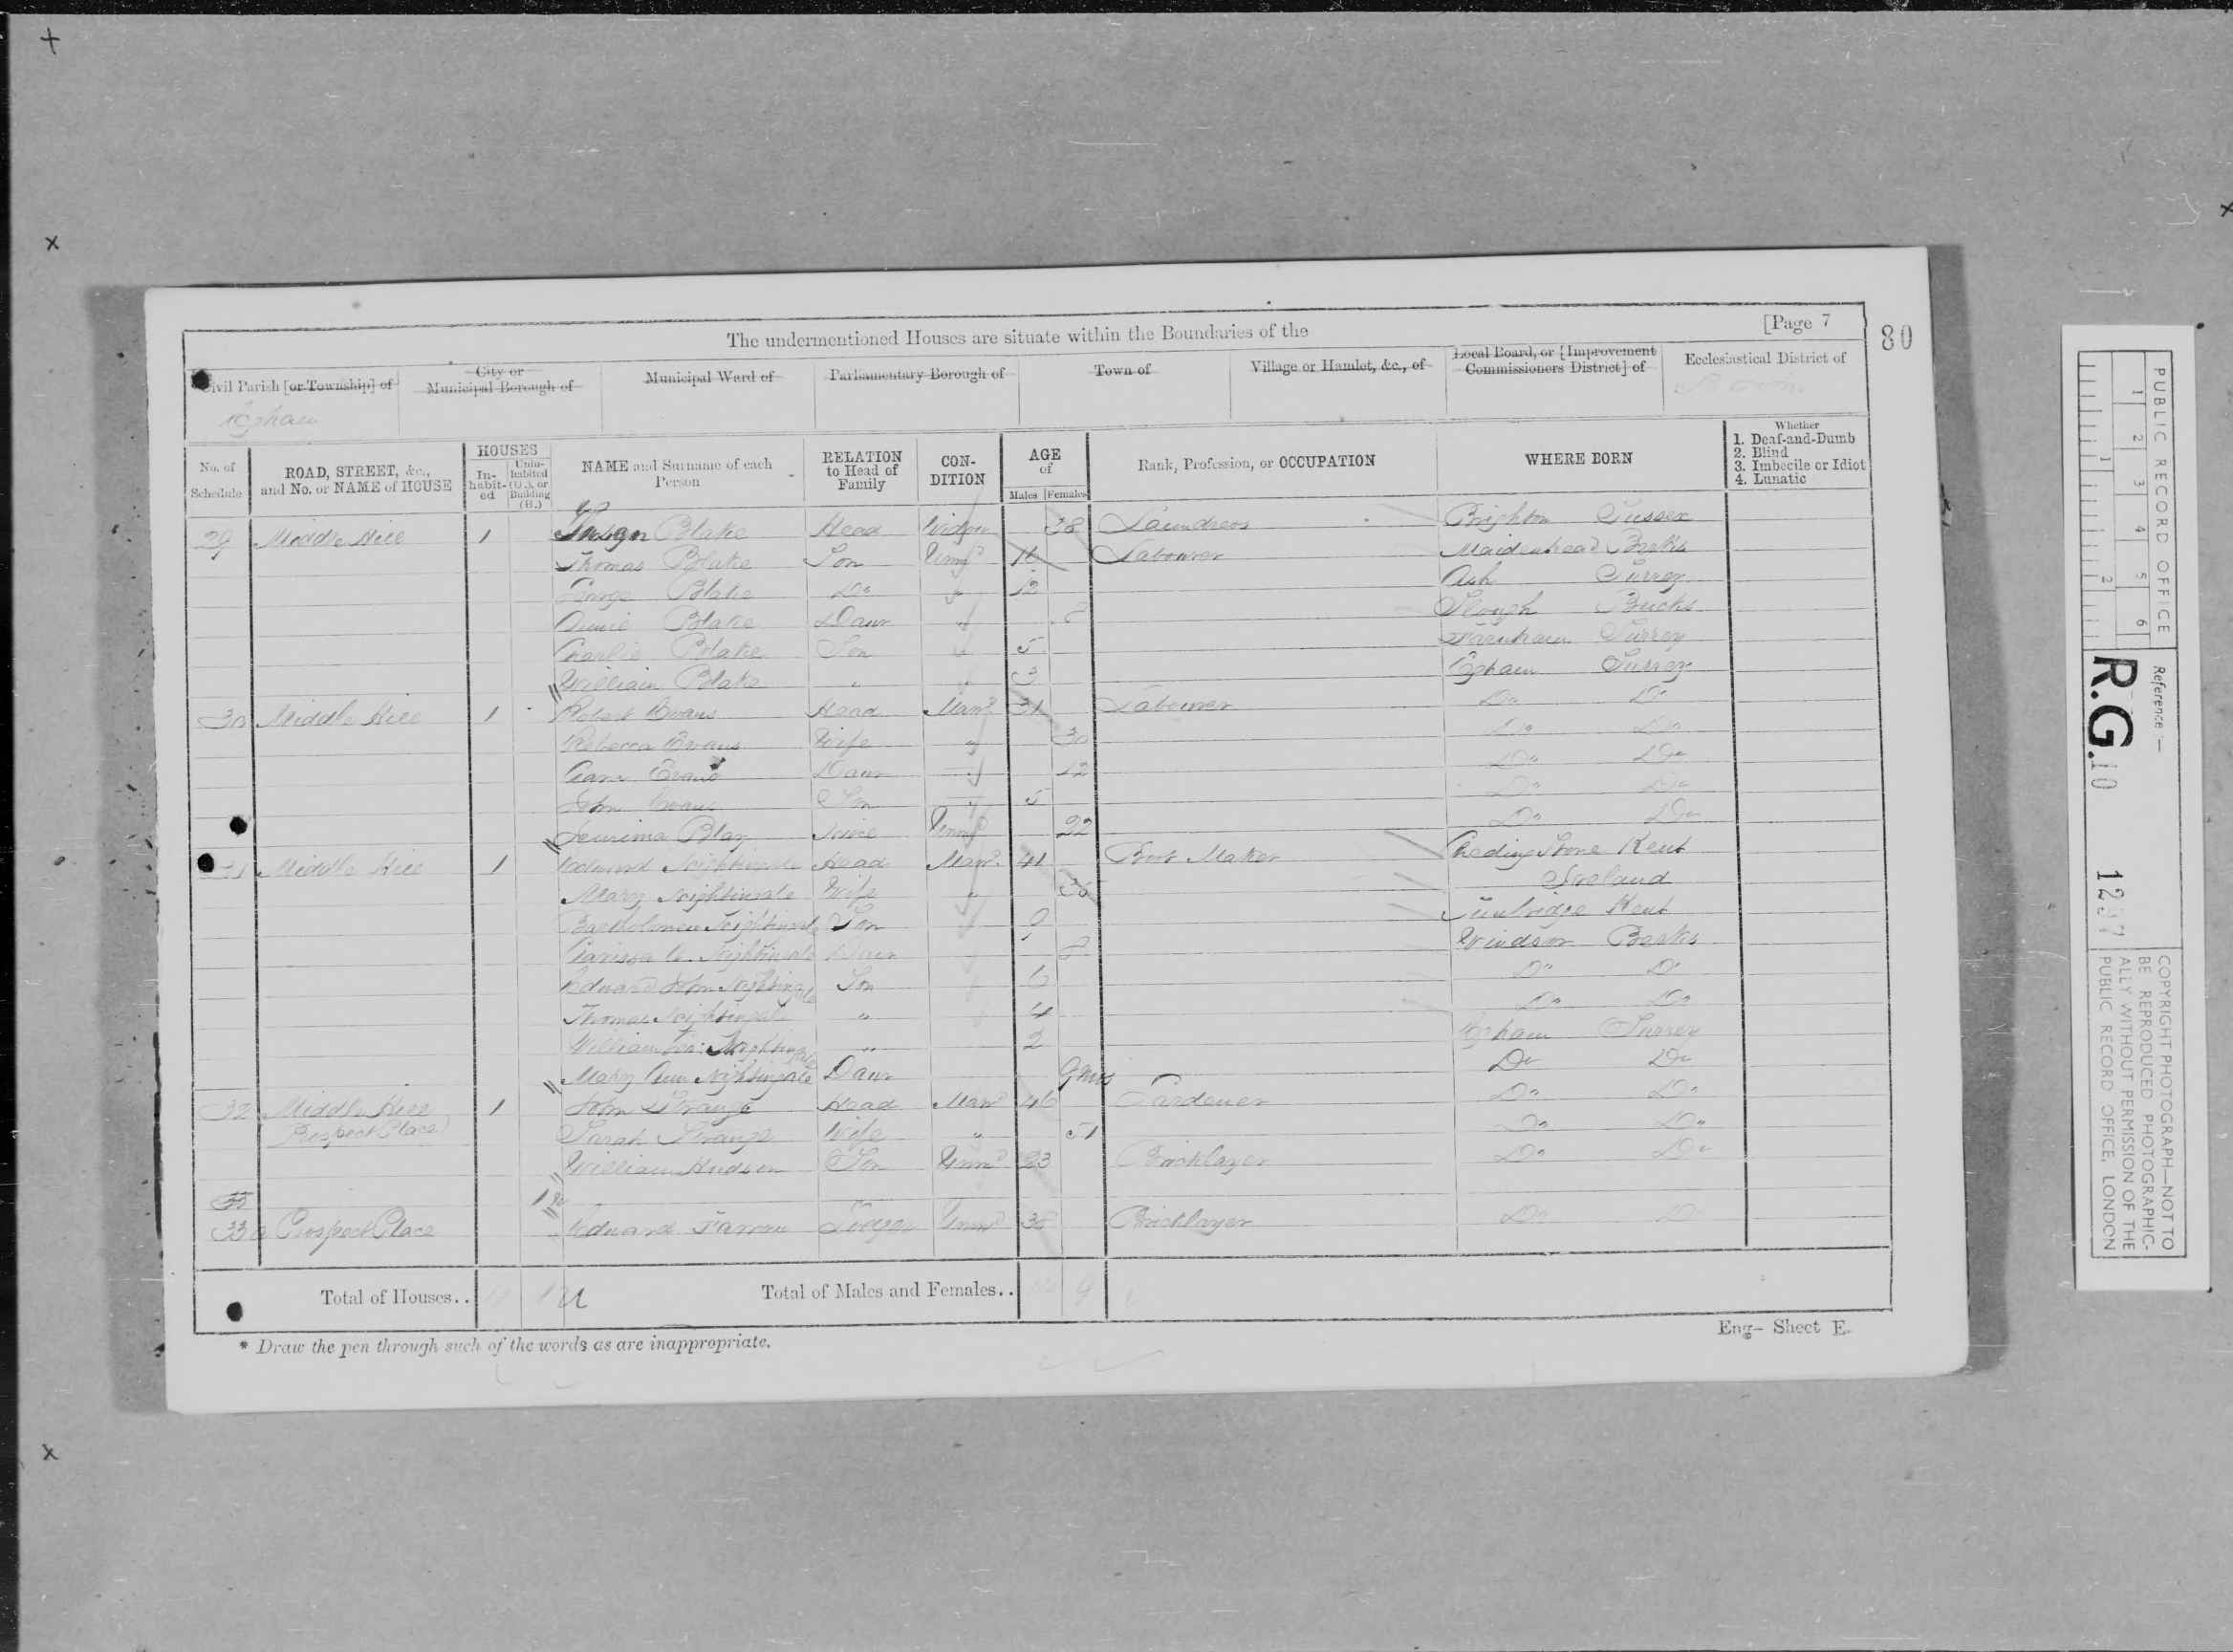 The undermentioned Houses are situate within the Boundaries of the [Page 7
80
Civil Parish [or Township] of
City or Municipal Borough of
Municipal Ward of
Parliamentary Borough of
Town of
Village or Hamlet, &c., of
Local Board, or [Improvement Commissioners District] of
Ecclesiastical District of
Egham
No. of Schedule
ROAD, STREET, &c., and No. or NAME of HOUSE
HOUSES
In-habit-ed
Unin-habited (U.), or Building (B.)
NAME and Surname of each Person
RELATION to Head of Family
CON-DITION
AGE of
Males Females
Rank, Profession, or OCCUPATION
WHERE BORN
Whether
1. Deaf-and-Dumb
2. Blind
3. Imbecile or Idiot
4. Lunatic
29 Middle Hill 1 Susan Blake Head Widow 38 Laundress Brighton Sussex
Thomas Blake Son Unmd 16 Labourer Maidenhead Berks
George Blake Do " 12 Ash Surrey
Annie Blake Daur " 8 Slough Bucks
Charlie Blake Son " 5 Farnham Surrey
William Blake " " 3 Egham Surrey
30 Middle Hill 1 Robert Evans Head Mard 31 Labourer Do Do
Rebecca Evans Wife " 30 Do Do
Evans Daur " 12 Do Do
John Evans Son " 5 Do Do
Blay Unmd 22 Do Do
31 Middle Hill 1 Edward Nightingale Head Mard 41 Boot Maker Chedingstone Kent
Mary Nightingale Wife " 36 Ireland
Bartholomew Nightingale Son 9 Tunbridge Kent
Nightingale Daur 8 Windsor Berks
Edward John Nightingale Son 6 Do Do
Thomas Nightingale " 4 Do Do
William Nightingale " 2 Egham Surrey
Mary Ann Nightingale Daur 9 mos Do Do
32 Middle Hill 1 John Strange Head Mard 46 Gardener Do Do
(Prospect Place) Sarah Strange Wife " 51 Do Do
William Hudson Son Unmd 23 Bricklayer Do Do
33 Prospect Place Edward Lodger Unmd 38 Bricklayer Do Do
Total of Houses.. Total of Males and Females.. 9
* Draw the pen through such of the words as are inappropriate.
Eng- Sheet E.
PUBLIC RECORD OFFICE
1 2 3 4 5 6
1 2
Reference:—
R.G.10
COPYRIGHT PHOTOGRAPH—NOT TO
BE REPRODUCED PHOTOGRAPHIC-
ALLY WITHOUT PERMISSION OF THE
PUBLIC RECORD OFFICE, LONDON